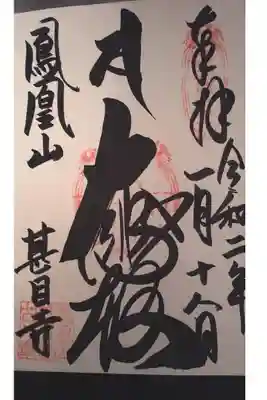 奉拝
令和二年
一月十日
大殿
鳳凰山
甚目寺